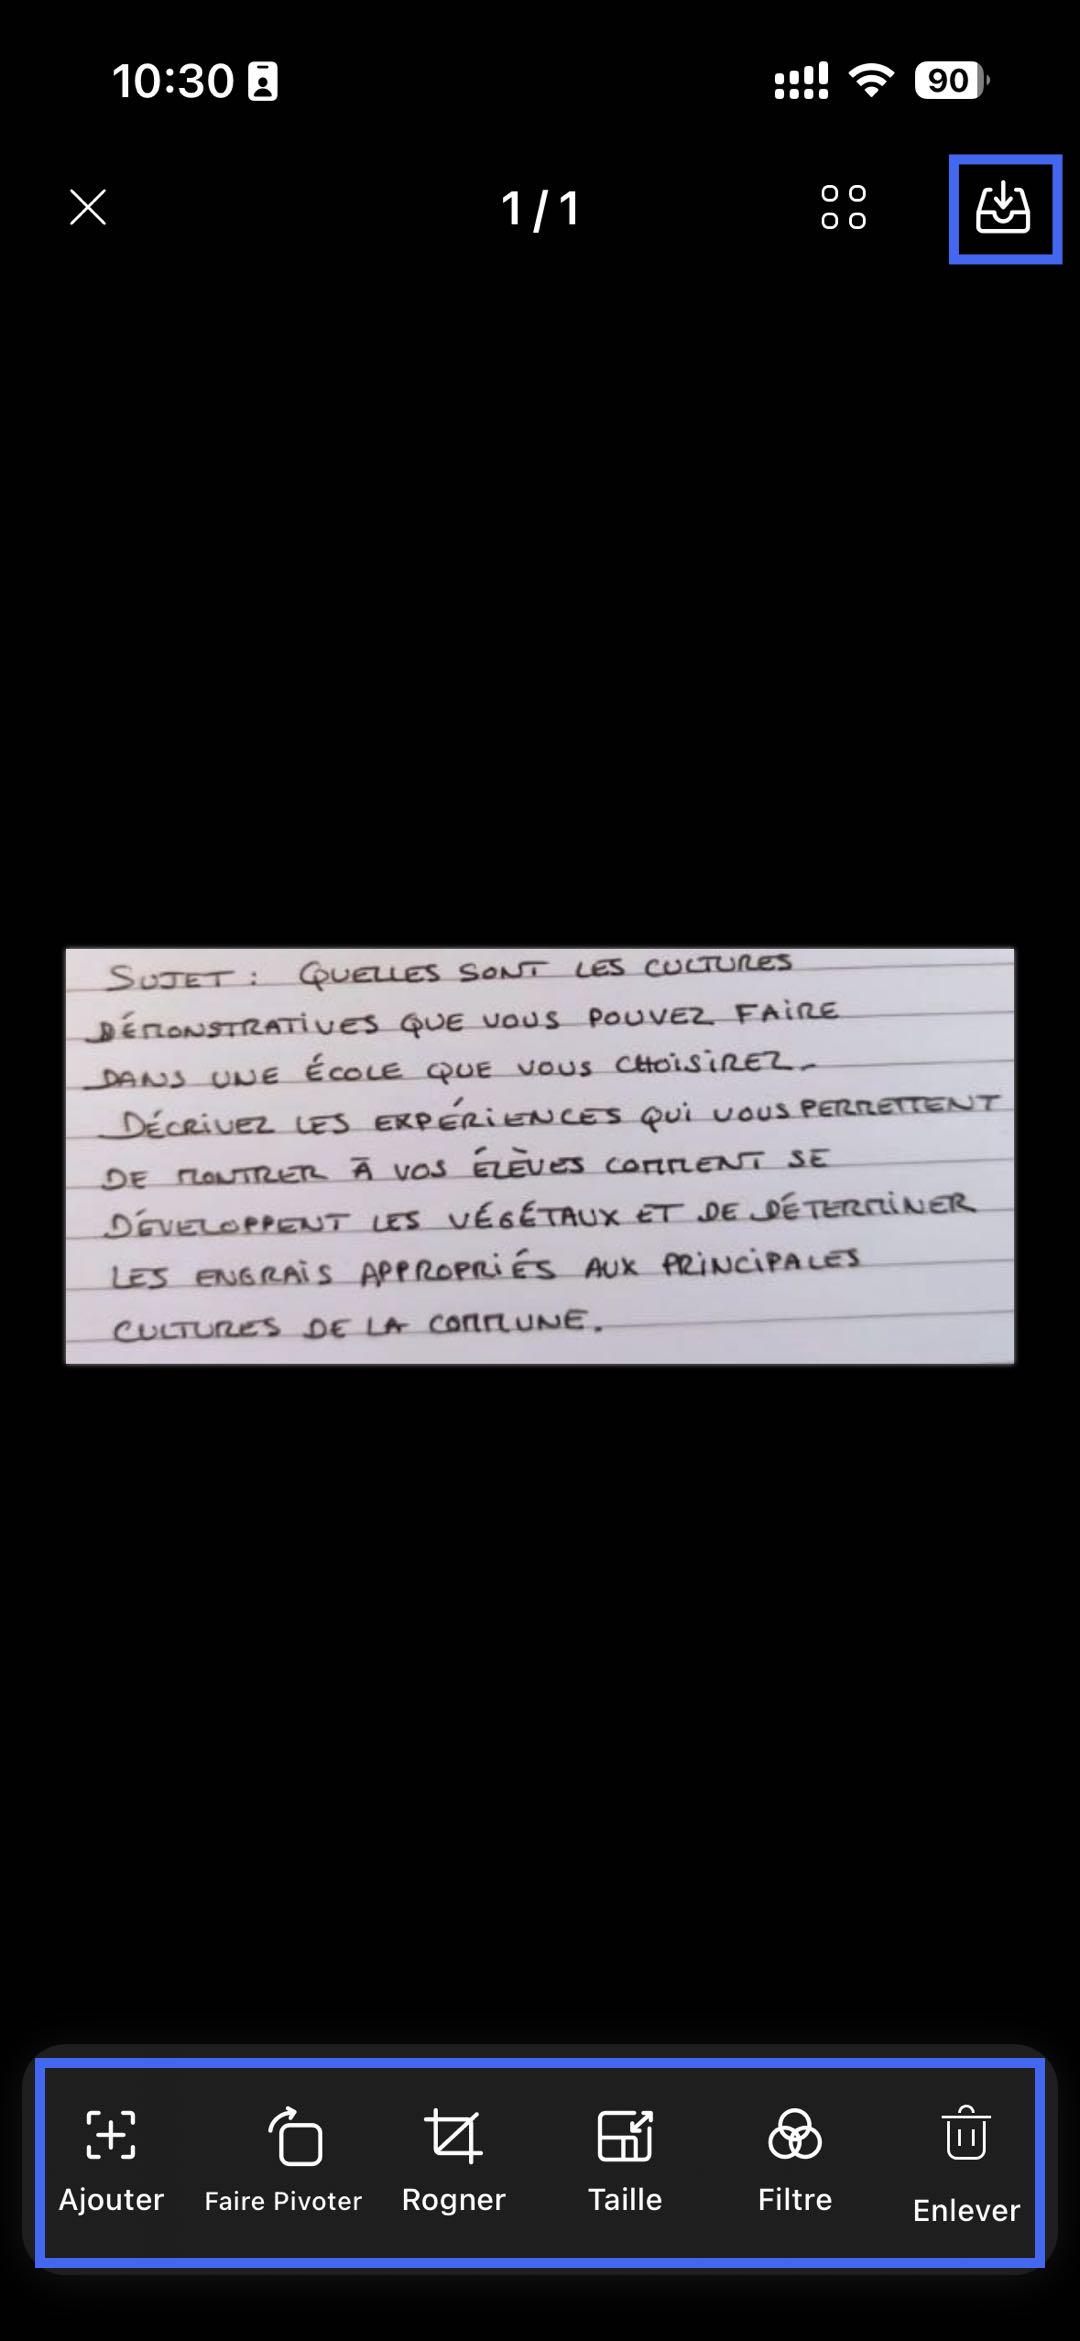 10:30
90
1/1
SUJET : QUELLES SONT LES CULTURES
DÉMONSTRATIVES QUE VOUS POUVEZ FAIRE
DANS UNE ÉCOLE QUE VOUS CHOISIREZ.
DÉCRIVEZ LES EXPÉRIENCES QUI VOUS PERMETTENT
DE MONTRER À VOS ÉLÈVES COMMENT SE
DÉVELOPPENT LES VÉGÉTAUX ET DE DÉTERMINER
LES ENGRAIS APPROPRIÉS AUX PRINCIPALES
CULTURES DE LA COMMUNE.
Ajouter Faire Pivoter Rogner Taille Filtre Enlever